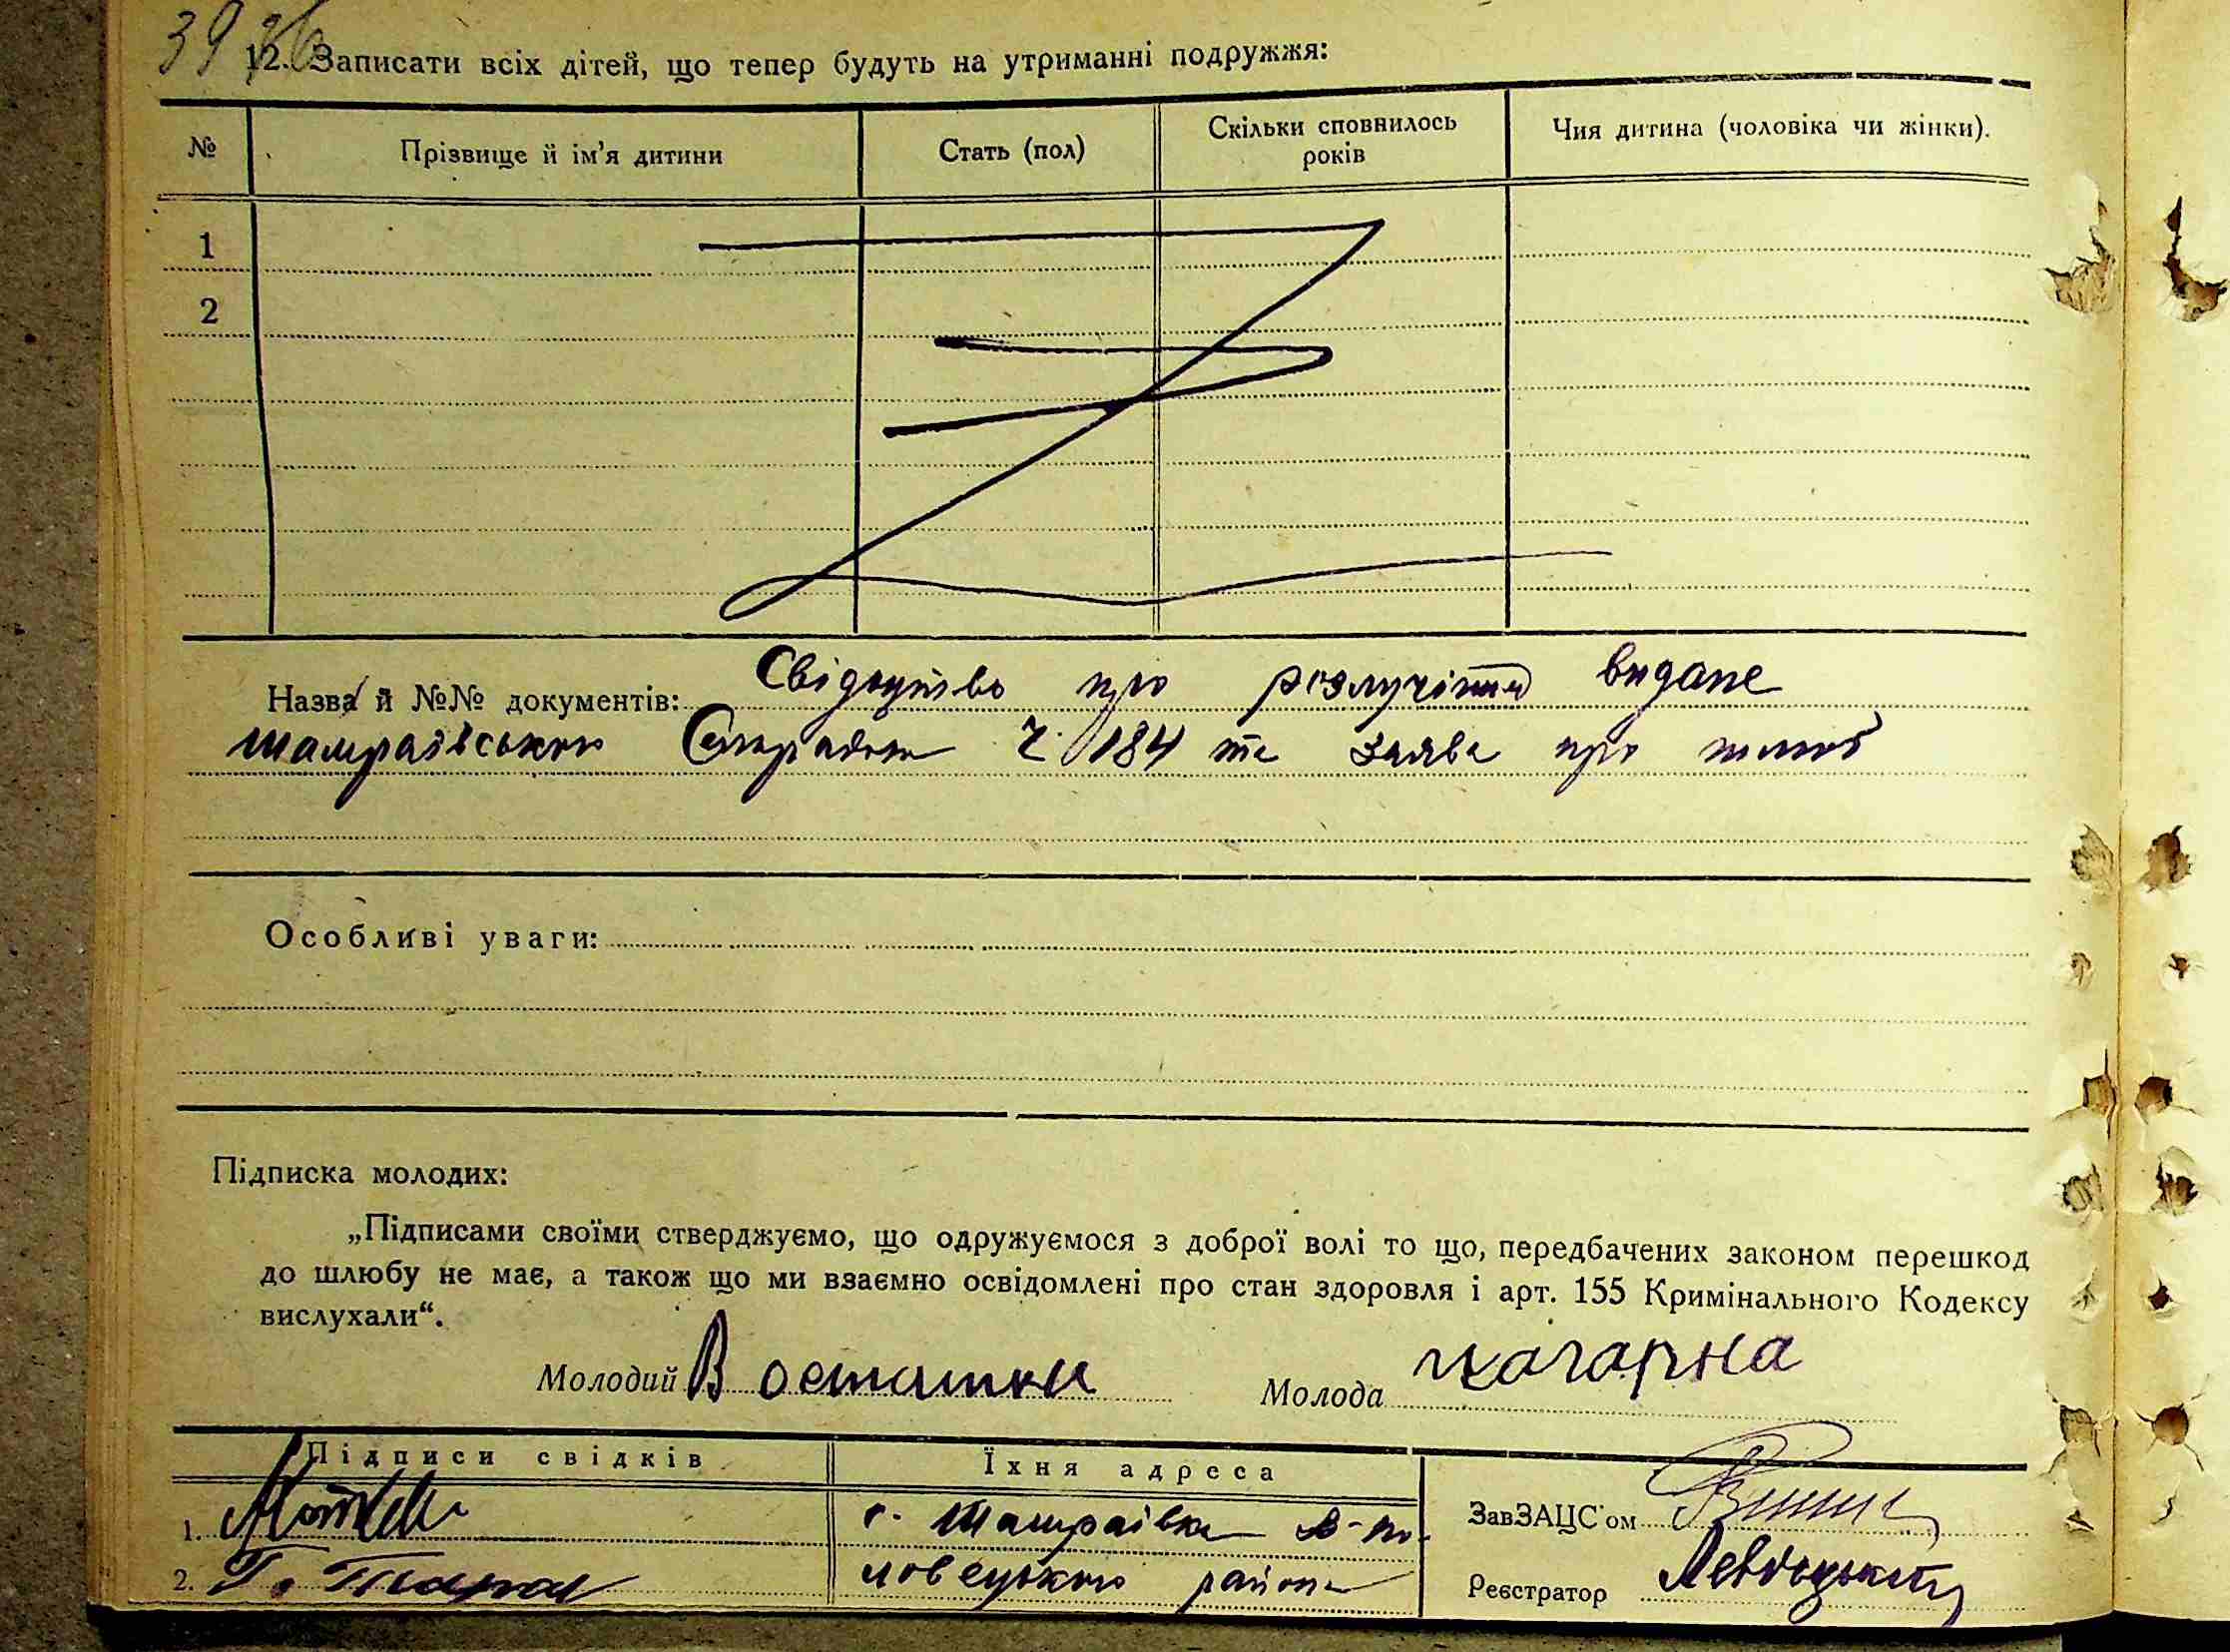 39
12. Записати всіх дітей, що тепер будуть на утриманні подружжя:
№ Прізвище й ім'я дитини Стать (пол) Скільки сповнилось років Чия дитина (чоловіка чи жінки).
1
2
Назва й №№ документів: Свідоцтво про розлучіння видане
шамраївською Сільрадою Ч. 184 та заява про шлюб
Особливі уваги:
Підписка молодих:
„Підписами своїми стверджуємо, що одружуємося з доброї волі то що, передбачених законом перешкод
до шлюбу не має, а також що ми взаємно освідомлені про стан здоровля і арт. 155 Кримінального Кодексу
вислухали“.
Молодий В Остатки Молода
Підписи свідків Їхня адреса
1. с. Шамраївка В-по-
ЗавЗАЦС'ом
2. ловецького района
Реєстратор Левіцький